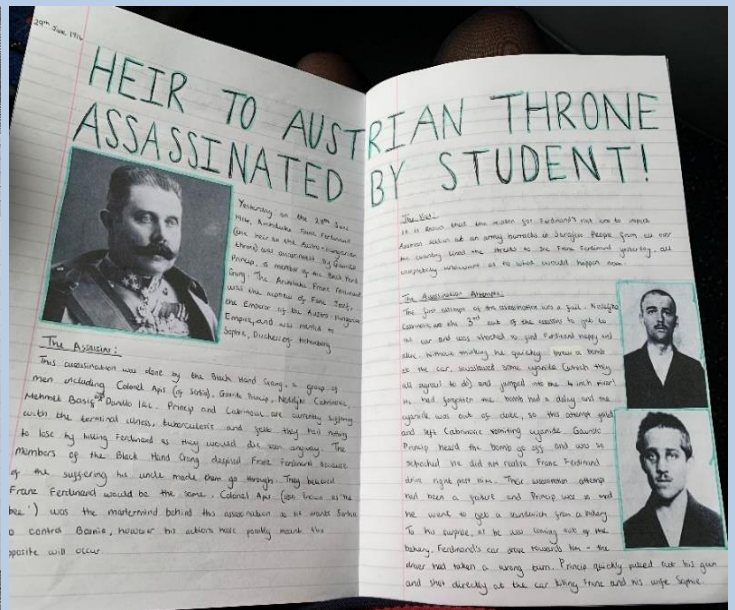 29th June 1914
HEIR TO AUSTRIAN THRONE
ASSASSINATED BY STUDENT!
Yesterday on the 28th June
1914, Archduke Franz Ferdinand
(the heir to the Austro-Hungarian
throne) was assassinated by Gavrilo
Princip, a member of the Black Hand
Gang. The Archduke Franz Ferdinand
was the nephew of Franz Josef,
the Emperor of the Austro-Hungarian
Empire, and was married to
Sophie, Duchess of Hohenberg
The Assassins:
This assassination was done by the Black Hand Gang, a group of
men including Colonel Apis (of Serbia), Gavrilo Princip, Nedeljko Cabrinovic,
Mehmet Basic and Danilo Ilic. Princip and Cabrinovic are currently suffering
with the terminal illness, tuberculosis and felt they had nothing
to lose by killing Ferdinand as they would die soon anyway. The
members of the Black Hand Gang despised Franz Ferdinand because
of the suffering his uncle made them go through. They believed
Franz Ferdinand would be the same. Colonel Apis (also known as 'the
bee') was the mastermind behind this assassination as he wants Serbia
to control Bosnia, however his actions have possibly meant the
opposite will occur.
The Visit:
It is known that the reason for Ferdinand's visit was to inspect
Austrian soldiers at an army barracks in Sarajevo. People from all over
the country lined the streets to see Franz Ferdinand yesterday, all
completely unaware as to what would happen next.
The Assassination Attempts:
The first attempt of the assassination was a fail. Nedeljko
Cabrinovic was the 3rd out of the assassins to get to
the car and was shocked to find Ferdinand happy and
alive. Without thinking he quickly threw a bomb
at the car, swallowed some cyanide (which they
all agreed to do) and jumped into the 4 inch river.
He had forgotten the bomb had a delay and the
cyanide was out of date, so this attempt failed
and left Cabrinovic vomiting cyanide. Gavrilo
Princip heard the bomb go off and was so
he did not realise Franz Ferdinand
drive right past him. Their assassination attempt
had been a failure and Princip was so mad
he went to get a sandwich from a bakery.
To his surprise, as he was coming out of the
bakery, Ferdinand's car drove towards him - the
driver had taken a wrong turn. Princip quickly pulled out his gun
and shot directly at the car killing Franz and his wife Sophie.